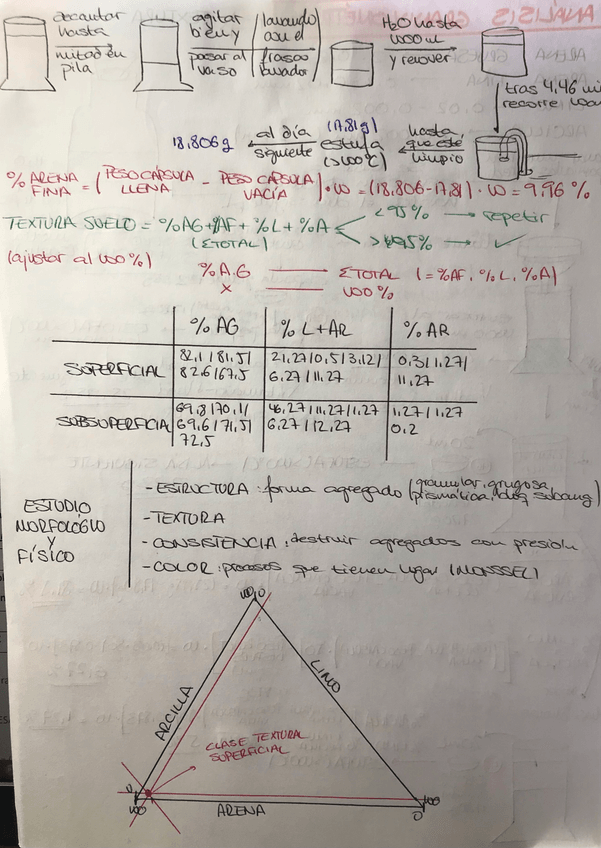 decantar hasta mitad en pila
agitar bien y pasar al vaso
(lavando) con el frasco lavador)
H2O hasta 1000 ml y remover
tras 4,46 mi
recorre
hasta que esté limpio
(17,81g) estufa (>100°C)
al día siguiente
18,806g
% ARENA FINA = (PESO CÁPSULA LLENA - PESO CÁPSULA VACÍA) · 10 = (18,806-17,81) · 10 = 9,96 %
TEXTURA SUELO = %AG+%AF+%L+%A
<95% → repetir
(ΣTOTAL)
>95% → ✓
(ajustar al 100%)
%A.G —— ΣTOTAL (=%AF, %L, %A)
x —— 100%
%AG %L+AR %AR
SUPERFICIAL 82,1/81,5/ 21,27/0,5/3,12/ 0,3/1,27/
82,6/67,5 6,27/11,27 11,27
SUBSUPERFICIAL 69,8/70,1/ 46,27/11,27/1,27 1,27/1,27
69,6/71,5/ 6,27/12,27 0,2
72,5
ESTUDIO MORFOLGIO Y FÍSICO
-ESTRUCTURA: forma agregado (granular, grugosa,
prismática, bloq subang)
-TEXTURA
-CONSISTENCIA: destruir agregados con presión
-COLOR: procesos que tienen lugar (MONSSEL)
100 0
ARCILLA
LIMO
CLASE TEXTURAL
SUPERFICIAL
0 100
100 0
ARENA